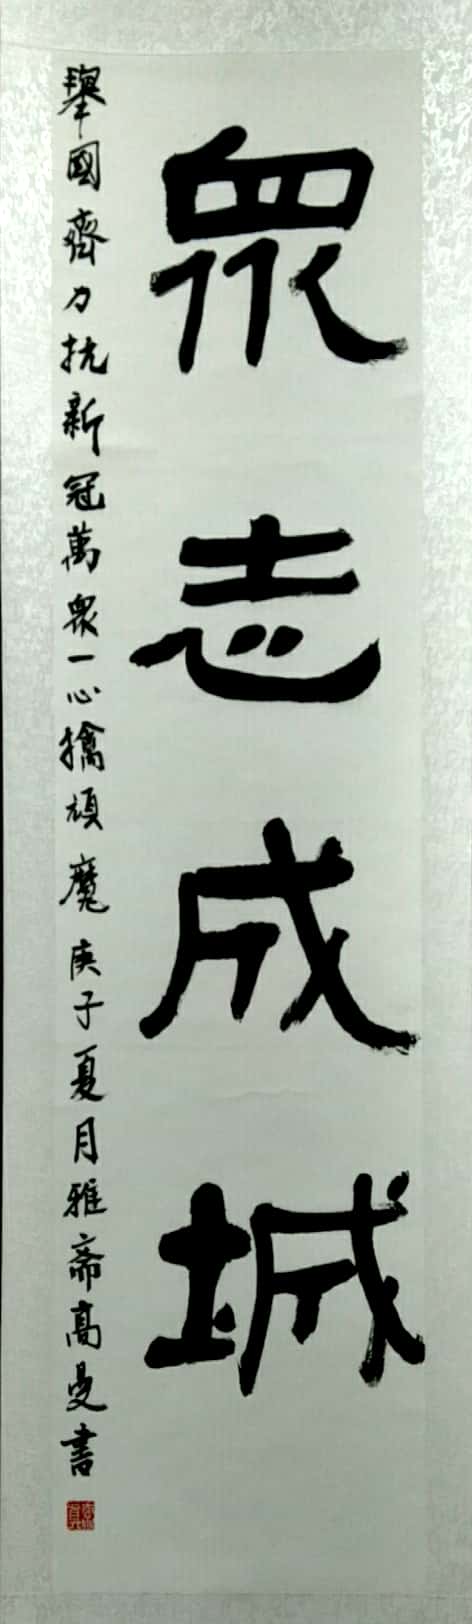 眾志成城
舉國齊力抗新冠萬眾一心擒頑魔庚子夏月雅斋高曼書